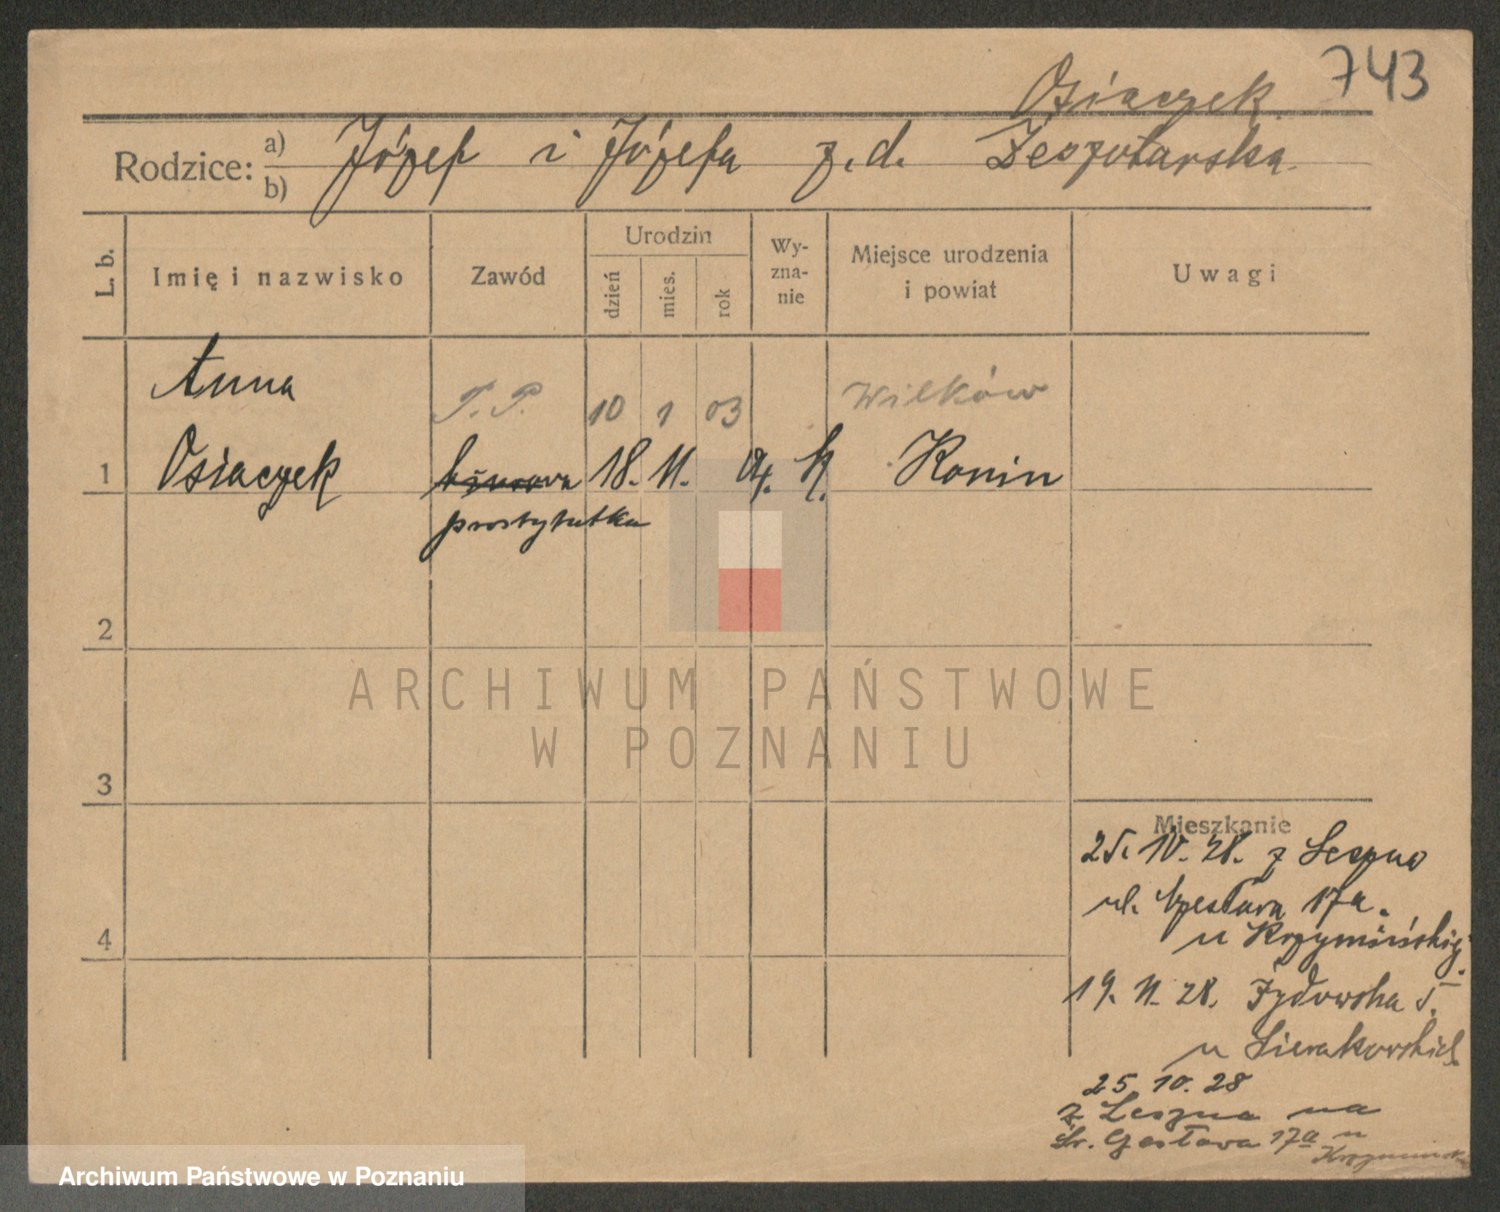 743
Osiaczek
Rodzice: a) b) Józef i Józefa z. d.
L. b. Imię i nazwisko Zawód Urodzin dzień mies. rok Wy-zna-nie Miejsce urodzenia i powiat Uwagi
Anna P. P. 10 1 03 Wilków
1 Osiaczek biurowa 18. 11. 04. k. Konin
prostytutka
2
ARCHIWUM PAŃSTWOWE
W POZNANIU
3
Mieszkanie
25. 10. 28. z Leszna
ul. Czesława 17a.
u Krzymińskiej
4
19. 11. 28. Żydowska 5.
u Sierakowskich
25 10. 28
z Leszna na
św. Czesława 17a u
Archiwum Państwowe w Poznaniu